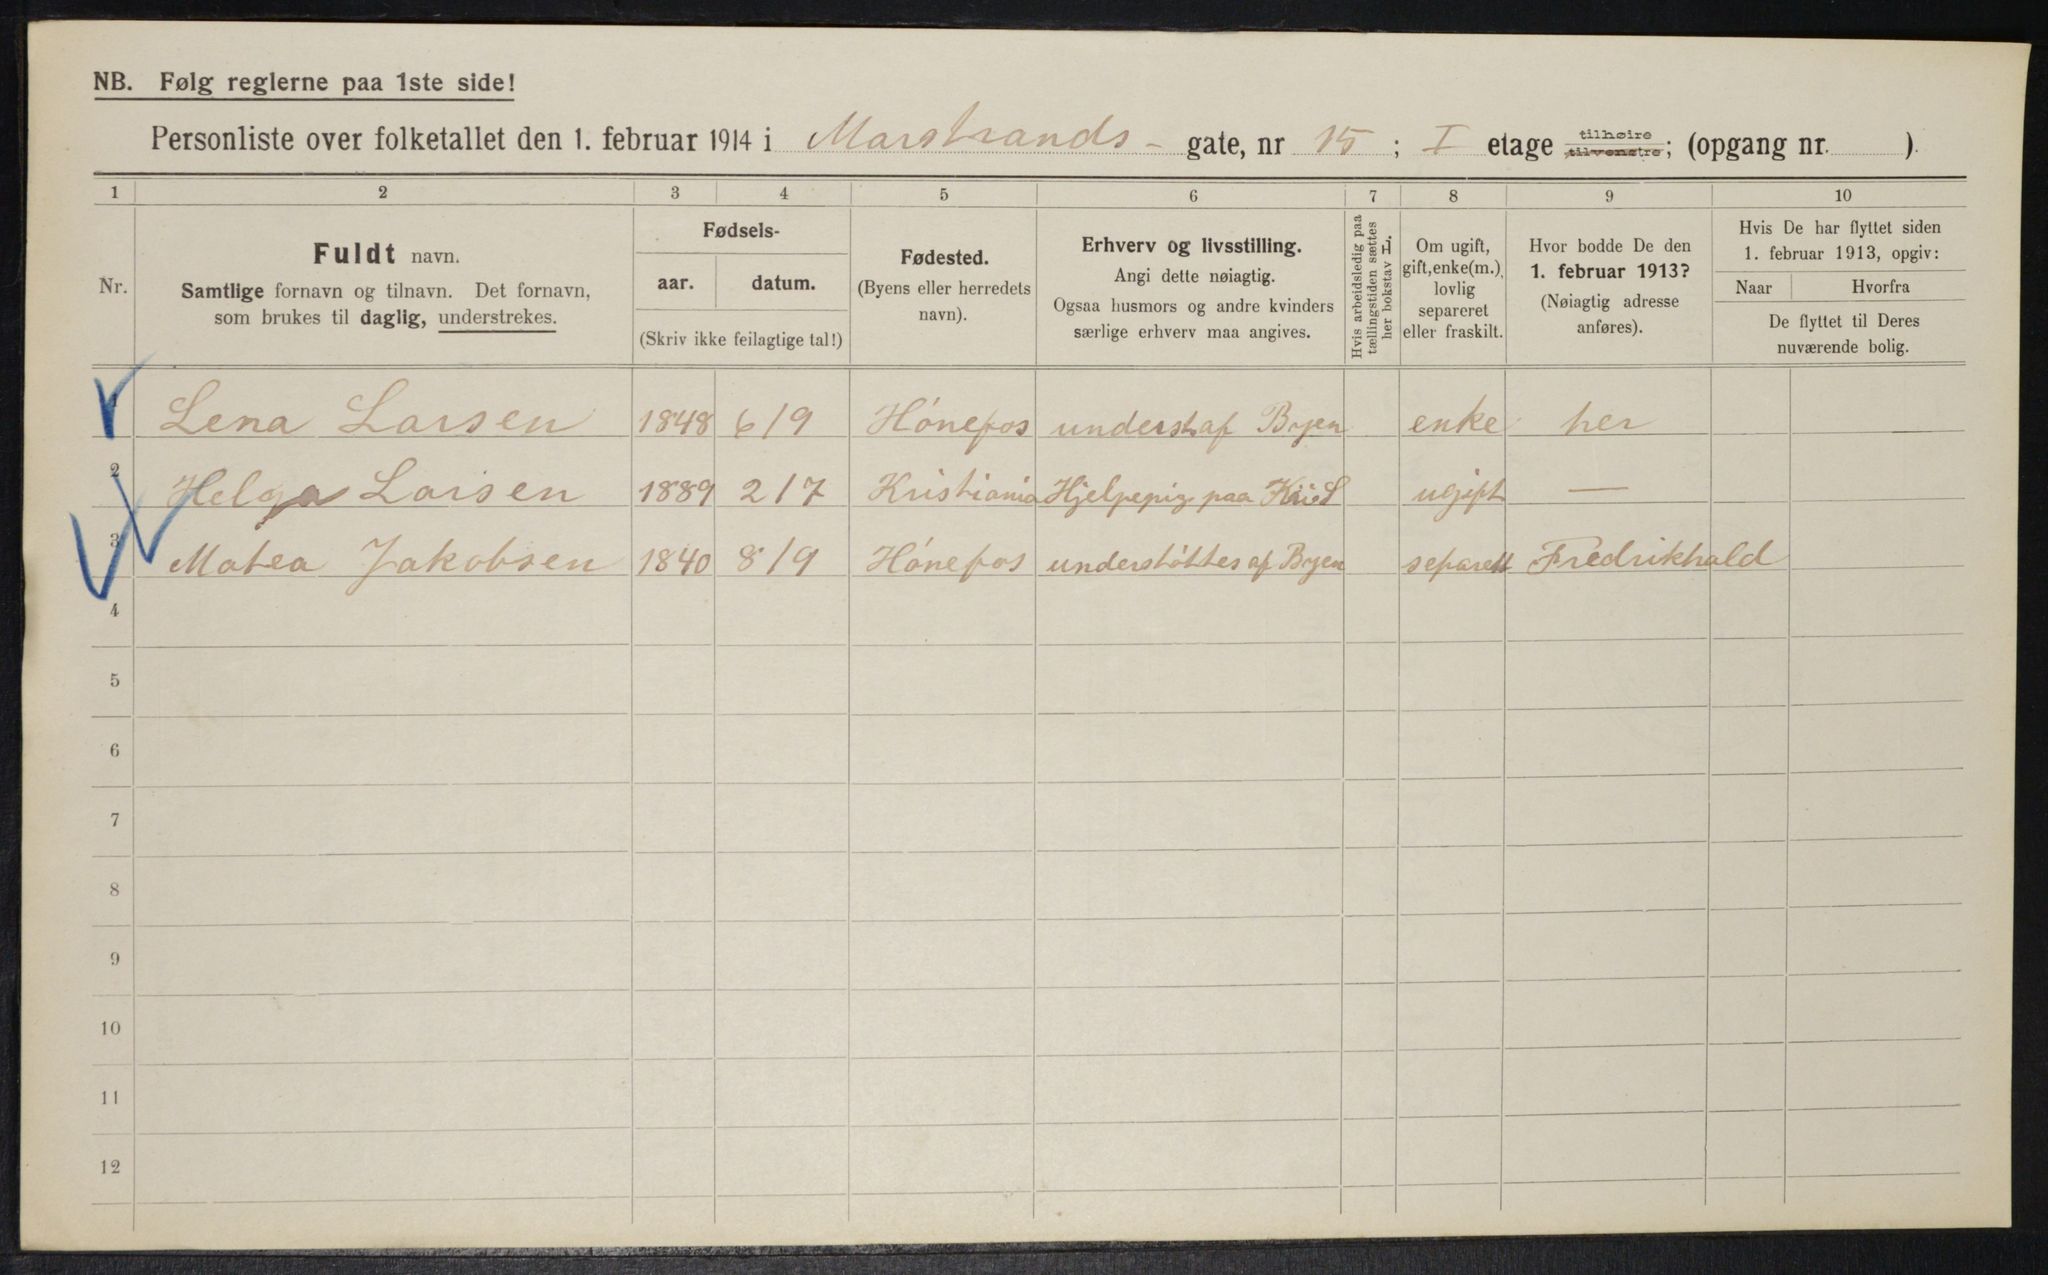 NB. Følg reglerne paa 1ste side!
Personliste over folketallet den 1. februar 1914 i Marstrands - gate, nr 15 ; I etage tilhøire tilvenstre; (opgang nr. ).
1 2 3 4 5 6 7 8 9 10
Nr.
Fuldt navn.
Samtlige fornavn og tilnavn. Det fornavn,
som brukes til daglig, understrekes.
Fødsels-
aar. datum.
(Skriv ikke feilagtige tal!)
Fødested.
(Byens eller herredets
navn).
Erhverv og livsstilling.
Angi dette nøiagtig.
Ogsaa husmors og andre kvinders
særlige erhverv maa angives.
Hvis arbeidsledig paa
tællingstiden sættes
her bokstav L.
Om ugift,
gift, enke(m.),
lovlig
separeret
eller fraskilt.
Hvor bodde De den
1. februar 1913?
(Nøiagtig adresse
anføres).
Hvis De har flyttet siden
1. februar 1913, opgiv:
Naar Hvorfra
De flyttet til Deres
nuværende bolig.
1 Lena Larsen 1848 6/9 Hónefos underst af Byen enke her
2 Helga Larsen 1889 2/7 Kristiania Hjelpepig paa ugift —
3 Matea Jakobsen 1840 8/9 Hónefos understóttes af Byen separett Fredrikhald
4
5
6
7
8
9
10
11
12